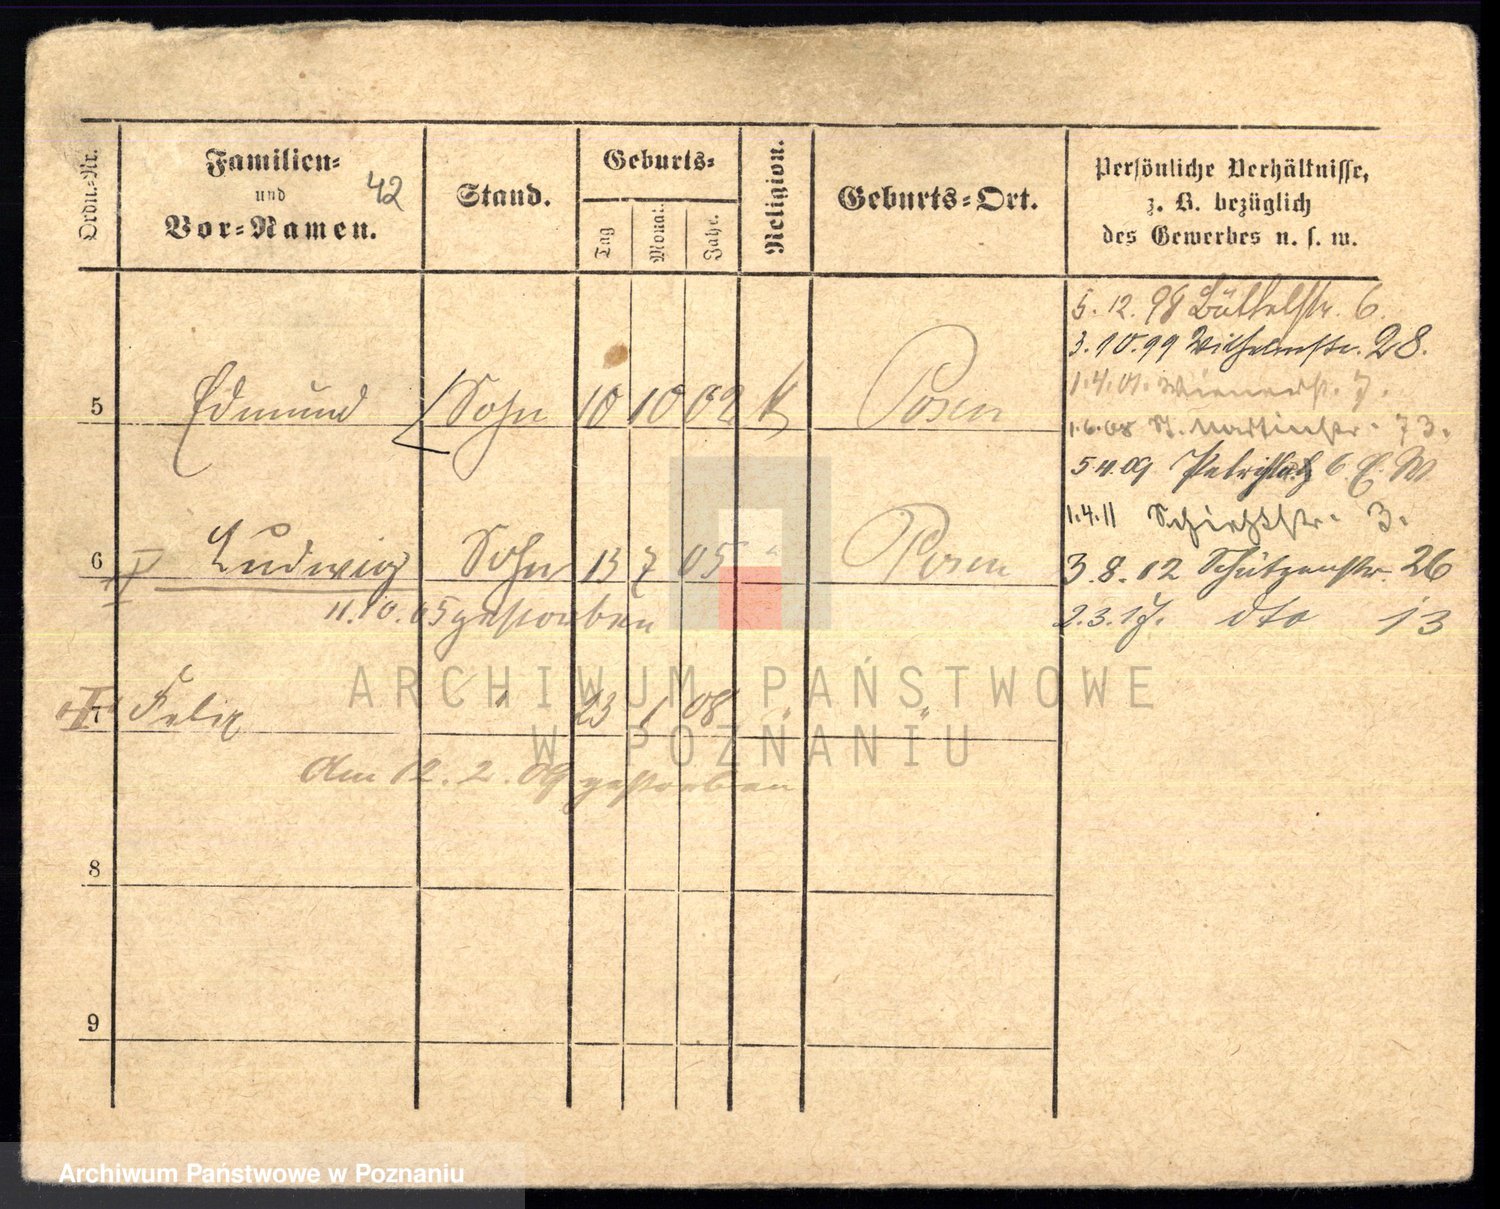 Ordn.-Nr.
Familien-
und
Vor-Namen.
42
Stand.
Geburts-
Tag
Monat.
Jahr.
Religion.
Geburts-Ort.
Persönliche Verhältnisse,
z. B. bezüglich
des Gewerbes u. s. w.
5.12.98 Büttelstr. 6.
3.10.99 Wilhelmstr. 28.
5 Edmund Sohn 10 10 02 k Posen
1.4.01. Wienerstr. 7.
1.6.08 St. Martinstr. 73.
5.11.09 Petriplatz 6 E. W.
1.4.11 Schießstr. 3.
6 Ludwig Sohn 13 7 05 " Posen
11.10.05 gestorben
3.8.12 Schützenstr. 26
2.3.17. dto 13
7 Felix " 23 1 08 " "
Am 12.2.09 gestorben
8
9
ARCHIWUM PAŃSTWOWE
W POZNANIU
Archiwum Państwowe w Poznaniu